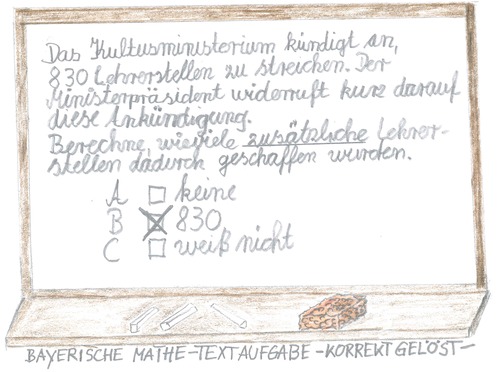 Das Kultusministerium kündigt an,
830 Lehrerstellen zu streichen. Der
Ministerpräsident widerruft kurz darauf
diese Ankündigung.
Berechne, wieviele zusätzliche Lehrer-
stellen dadurch geschaffen wurden.
A keine
B 830
C weiß nicht
BAYERISCHE MATHE-TEXTAUFGABE-KORREKT GELÖST-